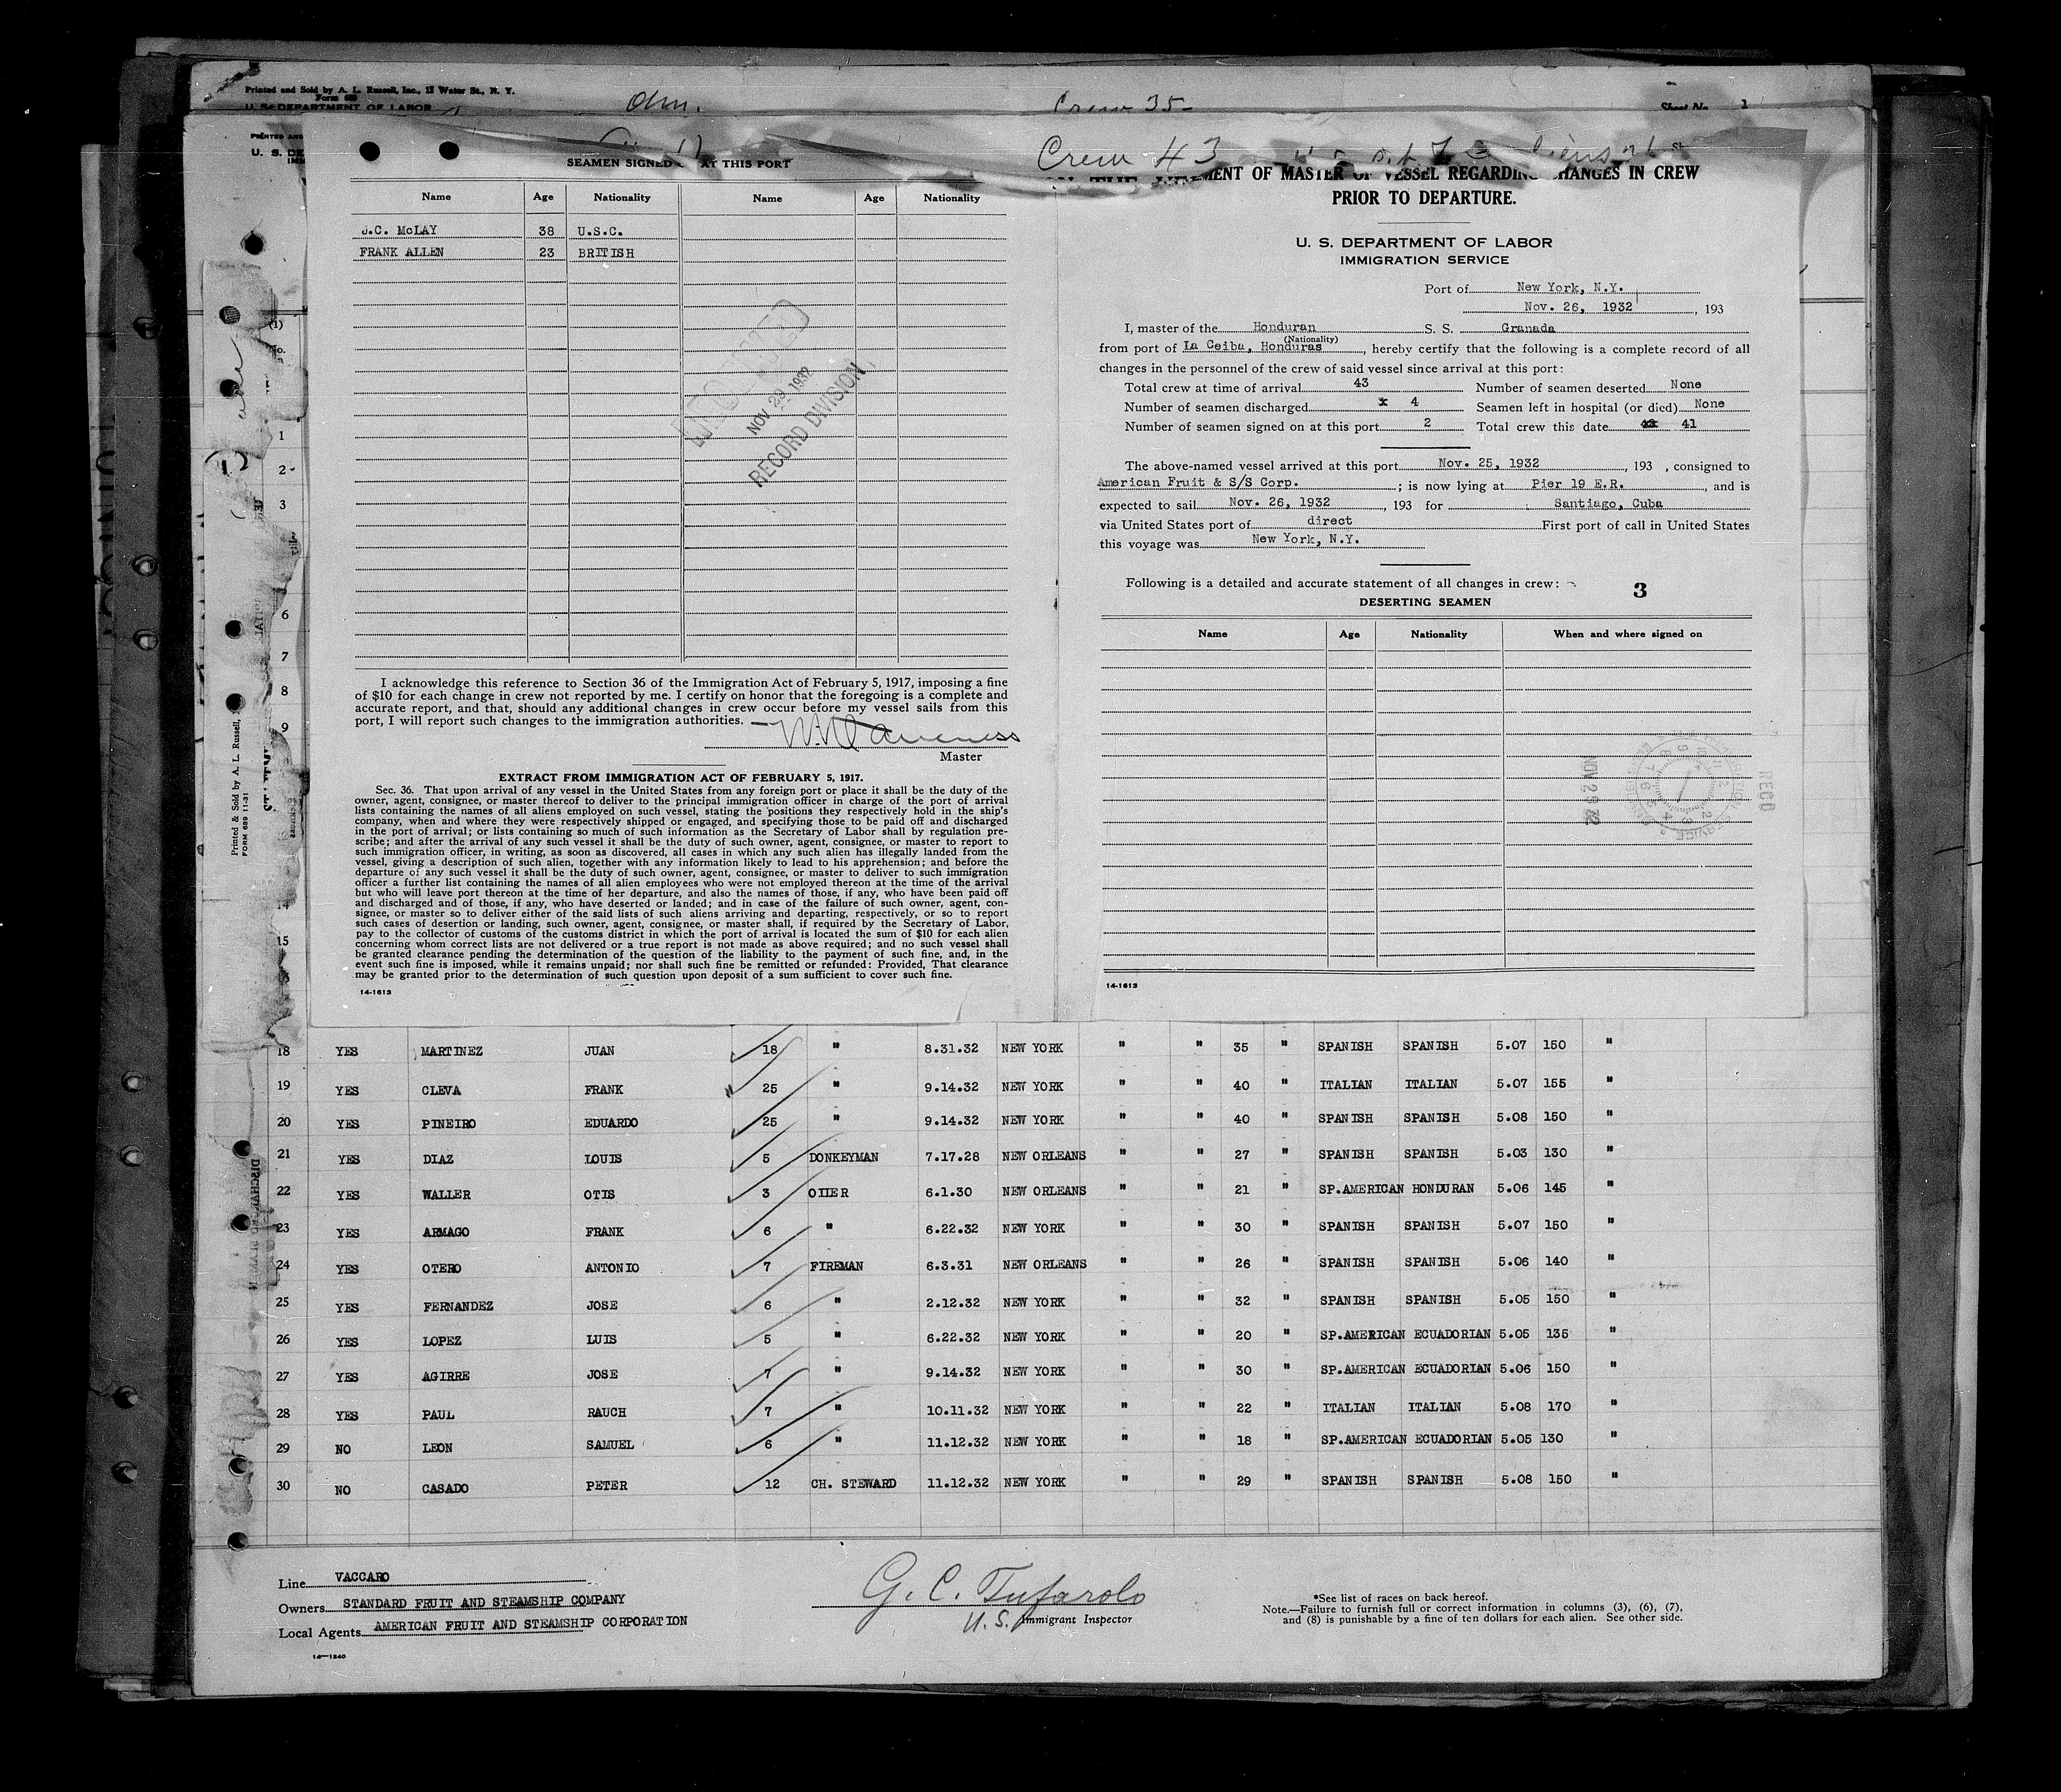 Printed and Sold by A. L. Russell, Inc., 13 Water St., N. Y.
Form 689
U. S. DEPARTMENT OF LABOR
Crew 35
Sheet No. 1
Crew 43
SEAMEN SIGNED AT THIS PORT
Name Age Nationality Name Age Nationality
J.C. McLAY 38 U.S.C.
FRANK ALLEN 23 BRITISH
NOV 29 1932
RECORD DIVISION
I acknowledge this reference to Section 36 of the Immigration Act of February 5, 1917, imposing a fine
of $10 for each change in crew not reported by me. I certify on honor that the foregoing is a complete and
accurate report, and that, should any additional changes in crew occur before my vessel sails from this
port, I will report such changes to the immigration authorities.
Master
EXTRACT FROM IMMIGRATION ACT OF FEBRUARY 5, 1917.
Sec. 36. That upon arrival of any vessel in the United States from any foreign port or place it shall be the duty of the
owner, agent, consignee, or master thereof to deliver to the principal immigration officer in charge of the port of arrival
lists containing the names of all aliens employed on such vessel, stating the positions they respectively hold in the ship's
company, when and where they were respectively shipped or engaged, and specifying those to be paid off and discharged
in the port of arrival; or lists containing so much of such information as the Secretary of Labor shall by regulation pre-
scribe; and after the arrival of any such vessel it shall be the duty of such owner, agent, consignee, or master to report to
such immigration officer, in writing, as soon as discovered, all cases in which any such alien has illegally landed from the
vessel, giving a description of such alien, together with any information likely to lead to his apprehension; and before the
departure of any such vessel it shall be the duty of such owner, agent, consignee, or master to deliver to such immigration
officer a further list containing the names of all alien employees who were not employed thereon at the time of the arrival
but who will leave port thereon at the time of her departure, and also the names of those, if any, who have been paid off
and discharged and of those, if any, who have deserted or landed; and in case of the failure of such owner, agent, con-
signee, or master so to deliver either of the said lists of such aliens arriving and departing, respectively, or so to report
such cases of desertion or landing, such owner, agent, consignee, or master shall, if required by the Secretary of Labor,
pay to the collector of customs of the customs district in which the port of arrival is located the sum of $10 for each alien
concerning whom correct lists are not delivered or a true report is not made as above required; and no such vessel shall
be granted clearance pending the determination of the question of the liability to the payment of such fine, and, in the
event such fine is imposed, while it remains unpaid; nor shall such fine be remitted or refunded: Provided, That clearance
may be granted prior to the determination of such question upon deposit of a sum sufficient to cover such fine.
14-1613
MENT OF MASTER OF VESSEL REGARDING CHANGES IN CREW
PRIOR TO DEPARTURE.
U. S. DEPARTMENT OF LABOR
IMMIGRATION SERVICE
Port of New York, N.Y.
Nov. 26, 1932, 193
I, master of the Honduran S. S. Granada
(Nationality)
from port of La Ceiba, Honduras, hereby certify that the following is a complete record of all
changes in the personnel of the crew of said vessel since arrival at this port:
Total crew at time of arrival 43 Number of seamen deserted None
Number of seamen discharged x 4 Seamen left in hospital (or died) None
Number of seamen signed on at this port 2 Total crew this date 41
The above-named vessel arrived at this port Nov. 25, 1932, 193 , consigned to
American Fruit & S/S Corp.; is now lying at Pier 19 E.R., and is
expected to sail Nov. 26, 1932, 193 for Santiago, Cuba
via United States port of direct First port of call in United States
this voyage was New York, N.Y.
Following is a detailed and accurate statement of all changes in crew:
3
DESERTING SEAMEN
Name Age Nationality When and where signed on
REC'D
NOV 29 32
14-1613
Printed & Sold by A. L. Russell,
FORM 689 11-31
(1)
No.
1
2
3
6
7
8
9
14
15
18 YES MARTINEZ JUAN 18 " 8.31.32 NEW YORK " " 35 " SPANISH SPANISH 5.07 150 "
19 YES CLEVA FRANK 25 " 9.14.32 NEW YORK " " 40 " ITALIAN ITALIAN 5.07 155 "
20 YES PINEIRO EDUARDO 25 " 9.14.32 NEW YORK " " 40 " SPANISH SPANISH 5.08 150 "
21 YES DIAZ LOUIS 5 DONKEYMAN 7.17.28 NEW ORLEANS " " 27 " SPANISH SPANISH 5.03 130 "
22 YES WALLER OTIS 3 OIIER 6.1.30 NEW ORLEANS " " 21 " SP.AMERICAN HONDURAN 5.06 145 "
23 YES ARMAGO FRANK 6 " 6.22.32 NEW YORK " " 30 " SPANISH SPANISH 5.07 150 "
24 YES OTERO ANTONIO 7 FIREMAN 6.3.31 NEW ORLEANS " " 26 " SPANISH SPANISH 5.06 140 "
25 YES FERNANDEZ JOSE 6 " 2.12.32 NEW YORK " " 32 " SPANISH SPANISH 5.05 150 "
26 YES LOPEZ LUIS 5 " 6.22.32 NEW YORK " " 20 " SP.AMERICAN ECUADORIAN 5.05 135 "
27 YES AGIRRE JOSE 7 " 9.14.32 NEW YORK " " 30 " SP.AMERICAN ECUADORIAN 5.06 150 "
28 YES PAUL RAUCH 7 " 10.11.32 NEW YORK " " 22 " ITALIAN ITALIAN 5.08 170 "
29 NO LEON SAMUEL 6 " 11.12.32 NEW YORK " " 18 " SP.AMERICAN ECUADORIAN 5.05 130 "
30 NO CASADO PETER 12 CH. STEWARD 11.12.32 NEW YORK " " 29 " SPANISH SPANISH 5.08 150 "
Line VACCARO
Owners STANDARD FRUIT AND STEAMSHIP COMPANY
Local Agents AMERICAN FRUIT AND STEAMSHIP CORPORATION
14-1240
G. C. Tufarolo
U. S. Immigrant Inspector
*See list of races on back hereof.
Note.—Failure to furnish full or correct information in columns (3), (6), (7),
and (8) is punishable by a fine of ten dollars for each alien. See other side.